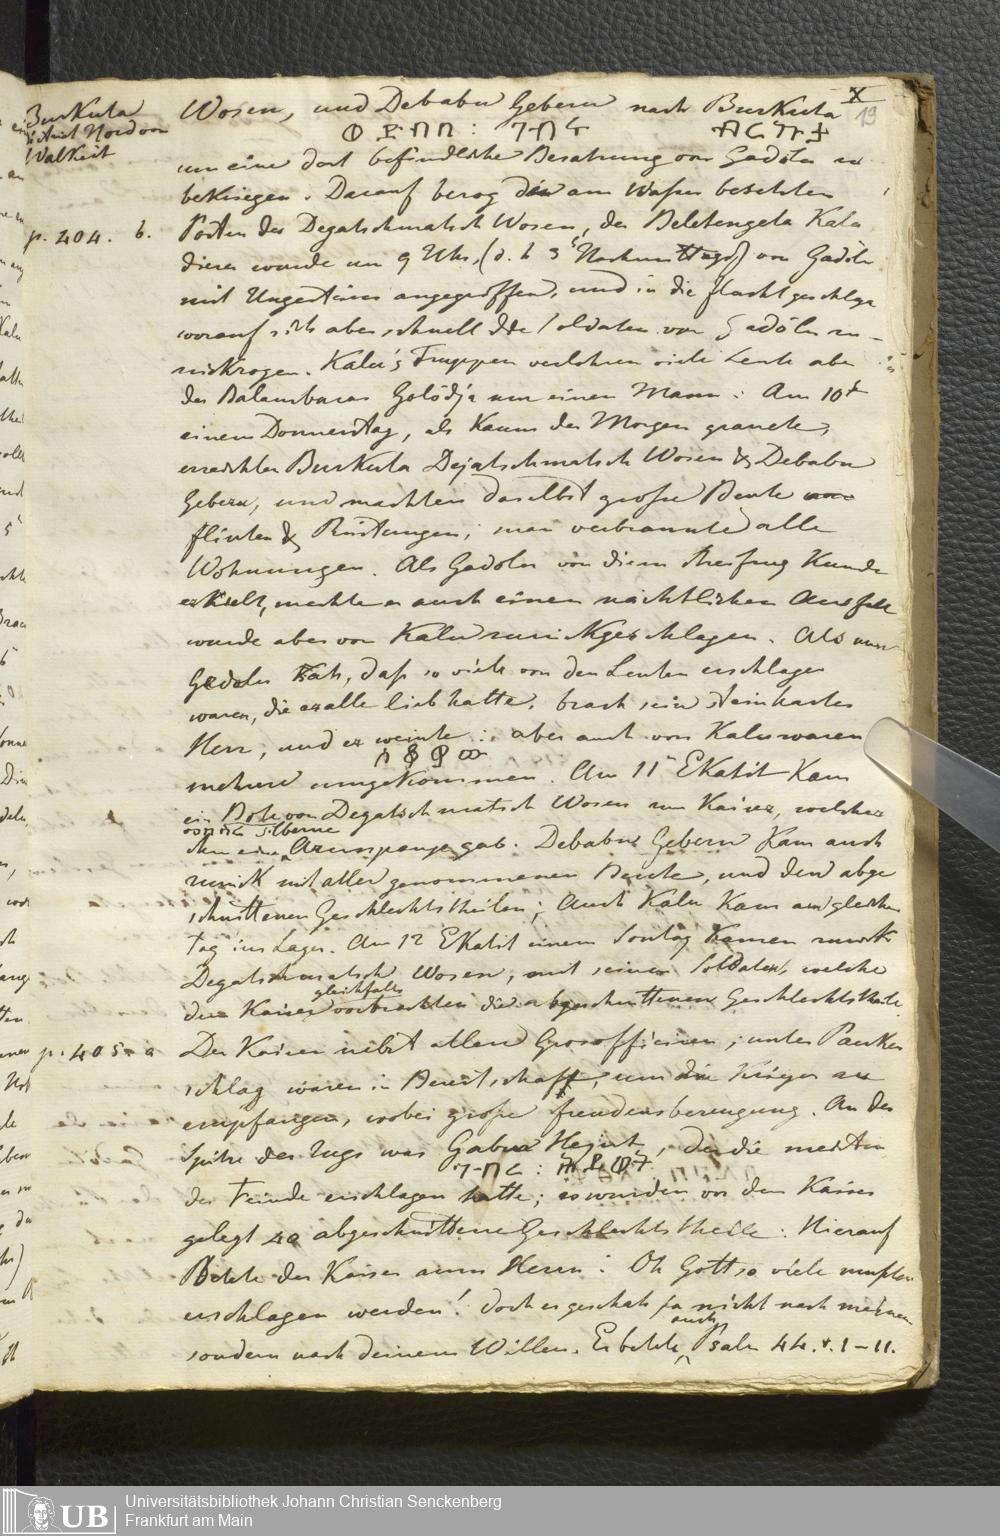 X
19
Burkuta
Wosen, und Debabu Geberu nach Burkuta
Amt Nord von
Walkeit
um eine dort befindliche Besatzung von Gadölu zu
bekriegen. Darauf bezog den am Wasser besetzten
p. 404. b. Posten des Degatschmatsch Wosen, der Beletengeta Kalu
dieser wurde um 9 Uhr, (d. h 3 Nachmittags) von Gadölu
mit Ungestüm angegriffen, und in die Flucht geschlagen
worauf sich aber schnell die Soldaten von Gadölu zu-
rückzogen. Kalu's Truppen verlohren viele Leute aber
der Balambaras Golödja nur einen Mann: Am 10t
einem Donnerstag, als kaum der Morgen grauete,
erreichten Burkuta Dejatschmatsch Wosen & Debabu
Geberu, und machten daselbst grosse Beute
Flinten & Rüstungen; man verbrannte alle
Wohnungen. Als Gadolu von diesem Streifzug Kunde
erhielt, machte er auch einen nächtlichen Ausfall
wurde aber von Kalu zurückgeschlagen. Als nun
Gedolu sah, dass so viele von den Leuten erschlagen
waren, die er alle lieb hatte, brach sein steinhartes
Herz, und er weinte: aber auch von Kalu waren
mehrere umgekommen. Am 11 Ekatit kam
ein Bote von Degatschmatsch Wosen zum Kaiser, welcher
silberne
ihm eine Armspange gab. Debabu Geberu kam auch
zurück mit aller genommenen Beute, und den abge
schnittenen Geschlechtstheilen; Auch Kalu kam am gleichen
Tag ins Lager. Am 12 Ekatit einem Sontag kamen zurück
Degatschmatsch Wosen, mit seinen Soldaten, welche
gleichfalls
dem Kaiser vorbrachten die abgeschnittenen Geschlechtstheile
p. 405. a Der Kaiser nebst allen Grosofficieren, unter Pauken
schlag waren in Bereitschaft, um die Krieger zu
empfangen, wobei grosse Freudensbezeugung. An der
Spitze des Zugs war Gabra Hejut, der die meisten
der Feinde erschlagen hatte; es wurden vor dem Kaiser
gelegt 40 abgeschnittene Geschlechtstheile. Hierauf
Betete der Kaiser zum Herrn: Oh Gott so viele mussten
erschlagen werden! doch es geschah ja nicht nach meinem
auch
sondern nach deinem Willen. Er betete Psalm 44. v. 1-11.
UB
Universitätsbibliothek Johann Christian Senckenberg
Frankfurt am Main